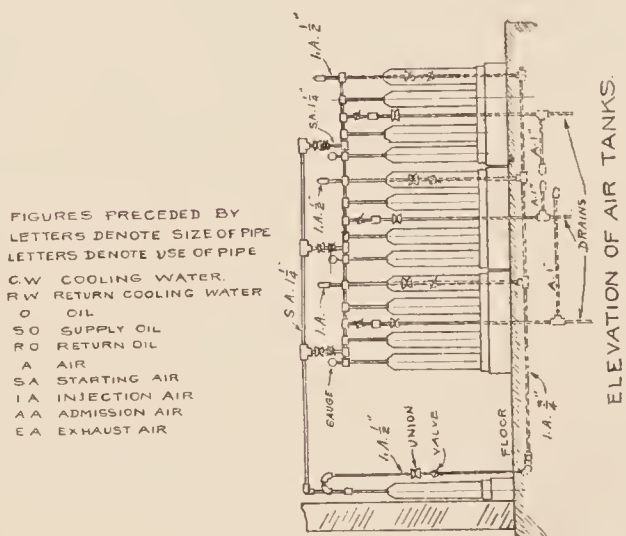 FIGURES PRECEDED BY
LETTERS DENOTE SIZE OF PIPE
LETTERS DENOTE USE OF PIPE
C.W COOLING WATER.
RW RETURN COOLING WATER
O OIL
SO SUPPLY OIL
RO RETURN OIL
A AIR
SA STARTING AIR
IA INJECTION AIR
AA ADMISSION AIR
EA EXHAUST AIR
I.A. 1/2"
S.A. 1 1/4"
I.A. 1/2"
S.A. 1 1/4"
I.A. 1/2"
GAUGE
I.A. 1/2"
UNION
VALVE
FLOOR
A.1"
A.1"
A.1"
DRAINS
I.A. 3/4"
ELEVATION OF AIR TANKS.